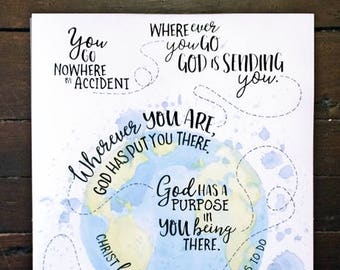 You
GO
NOWHERE
BY ACCIDENT
WHERE ever
you GO
GOD IS SENDING
you.
Wherever YOU ARE,
GOD HAS PUT YOU THERE
God HAS A
PURPOSE
in
YOU being
THERE.
CHRIST
TO DO